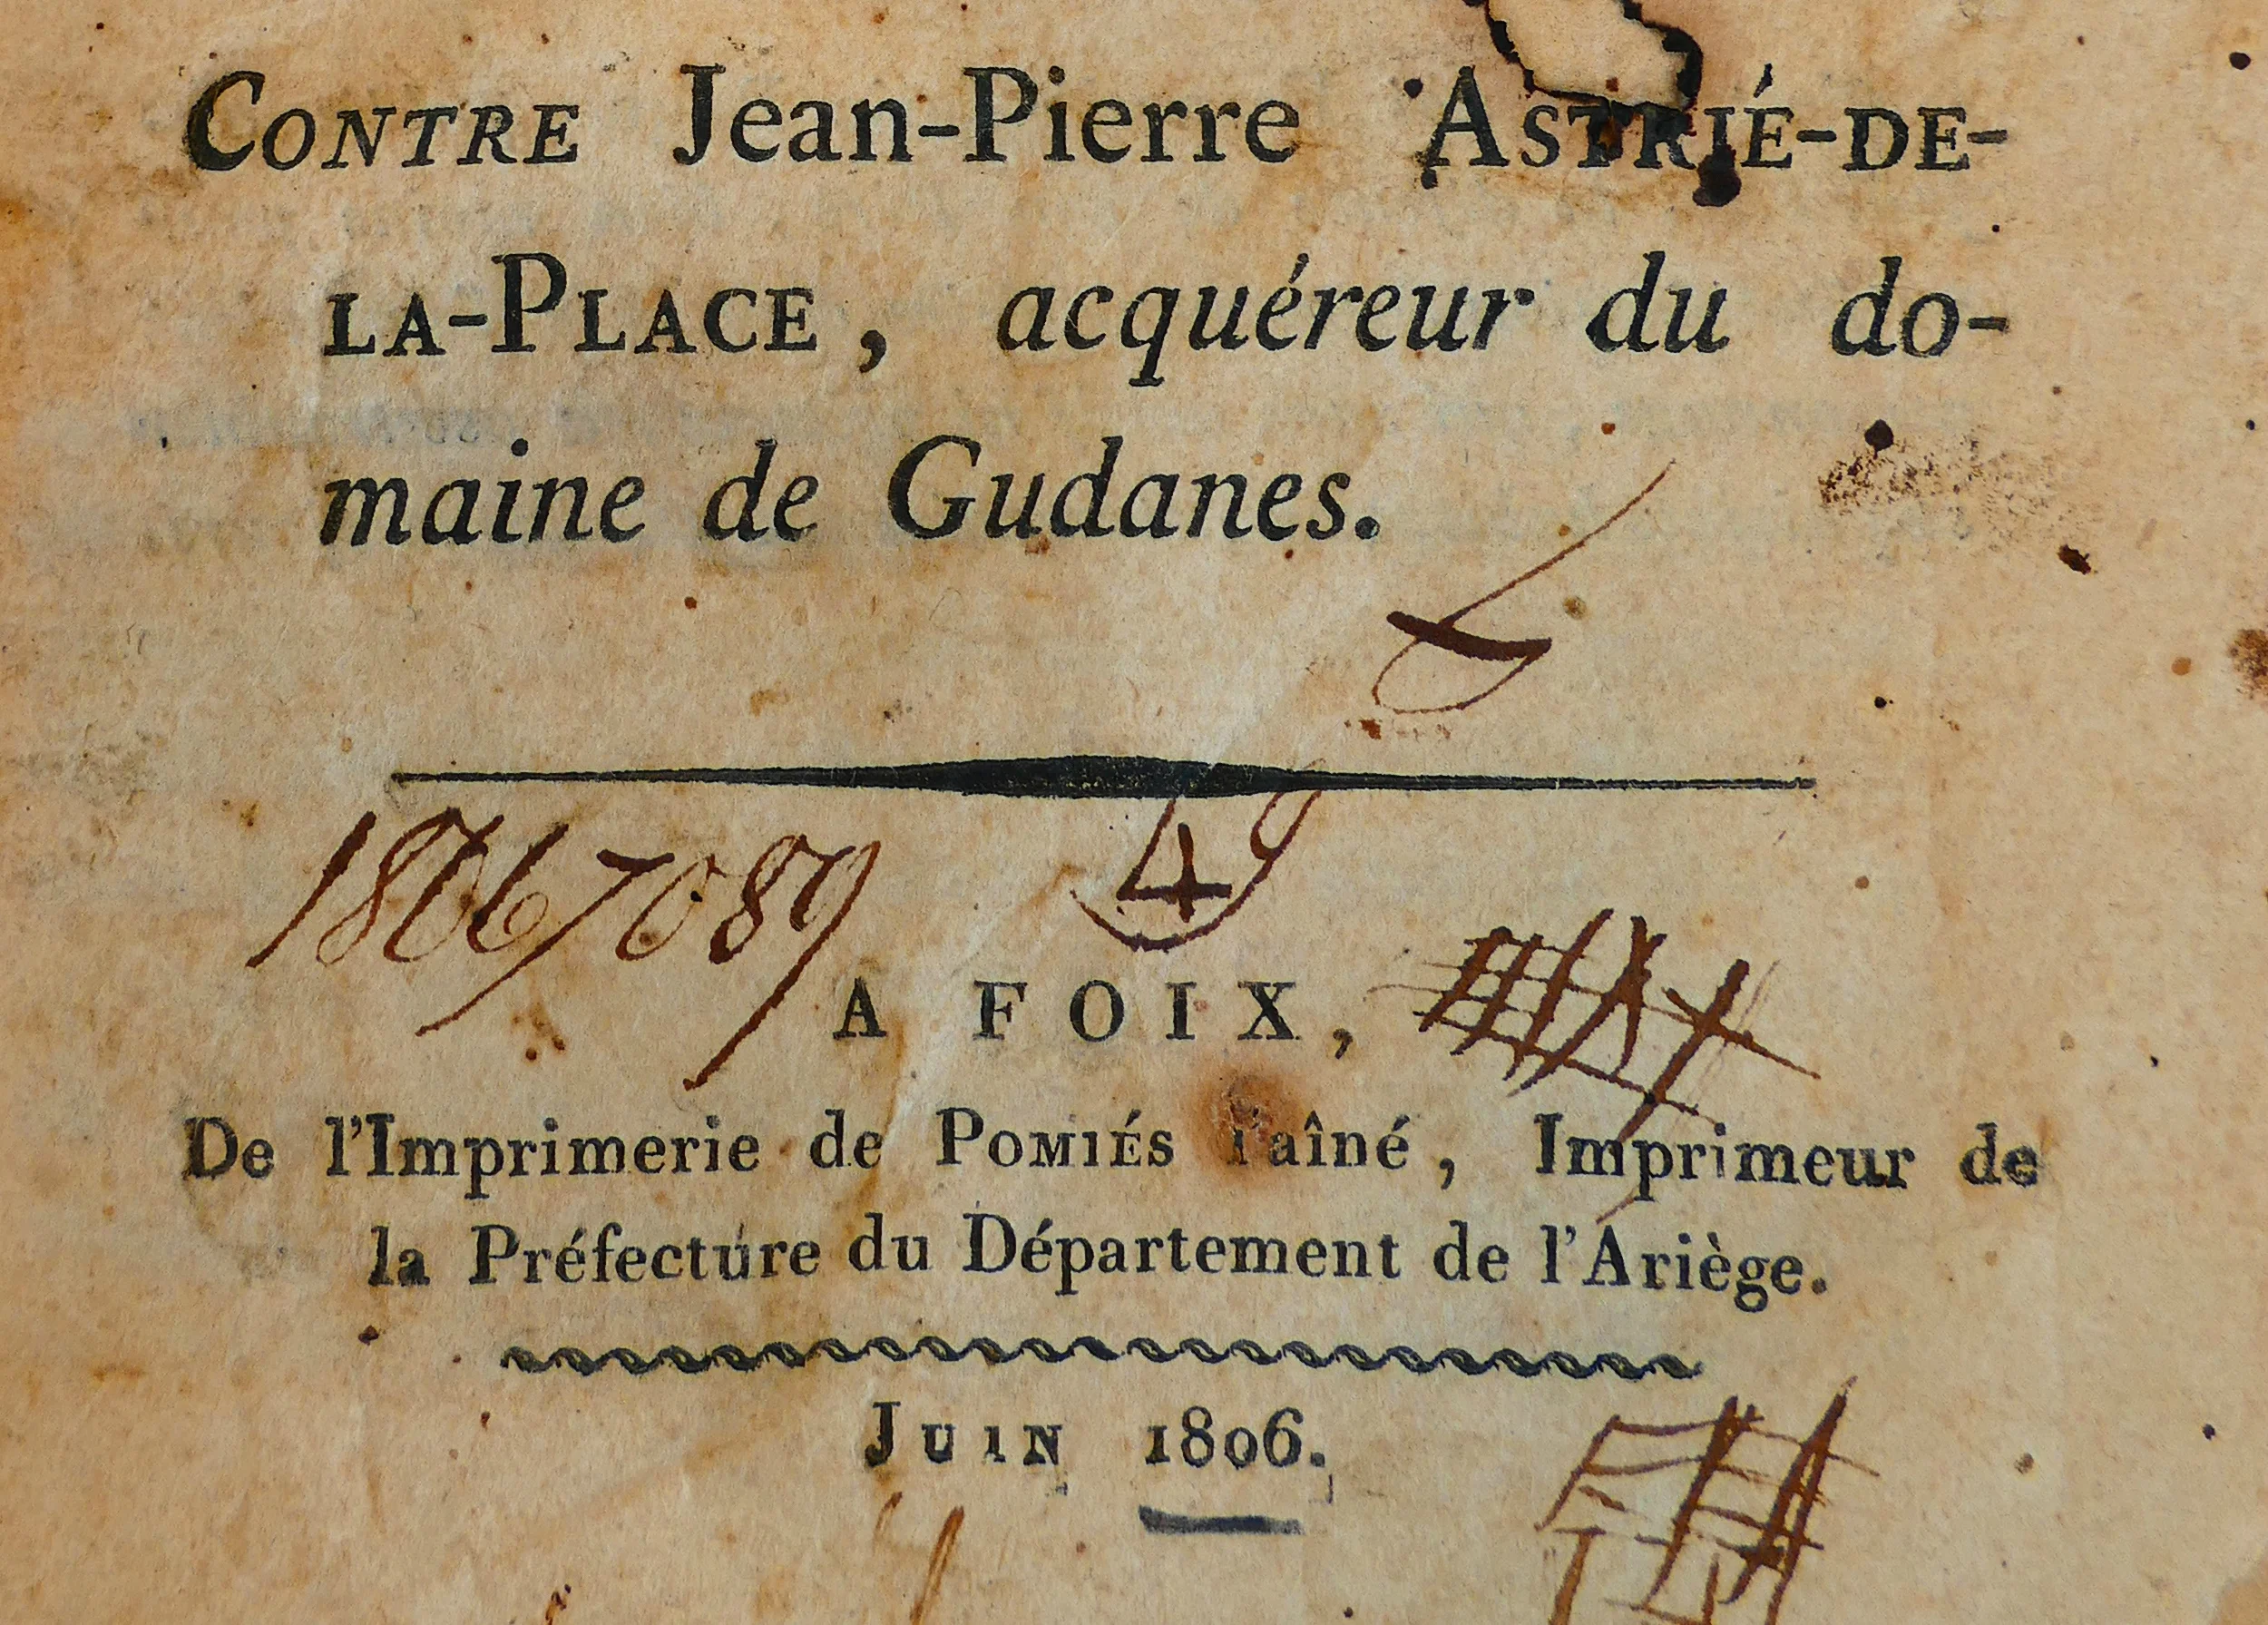 CONTRE Jean-Pierre ASTRIÉ-DE-
LA-PLACE, acquéreur du do-
maine de Gudanes.
18067089
4
A FOIX,
De l'Imprimerie de POMIÉS l'aîné, Imprimeur de
la Préfecture du Département de l'Ariège.
JUIN 1806.